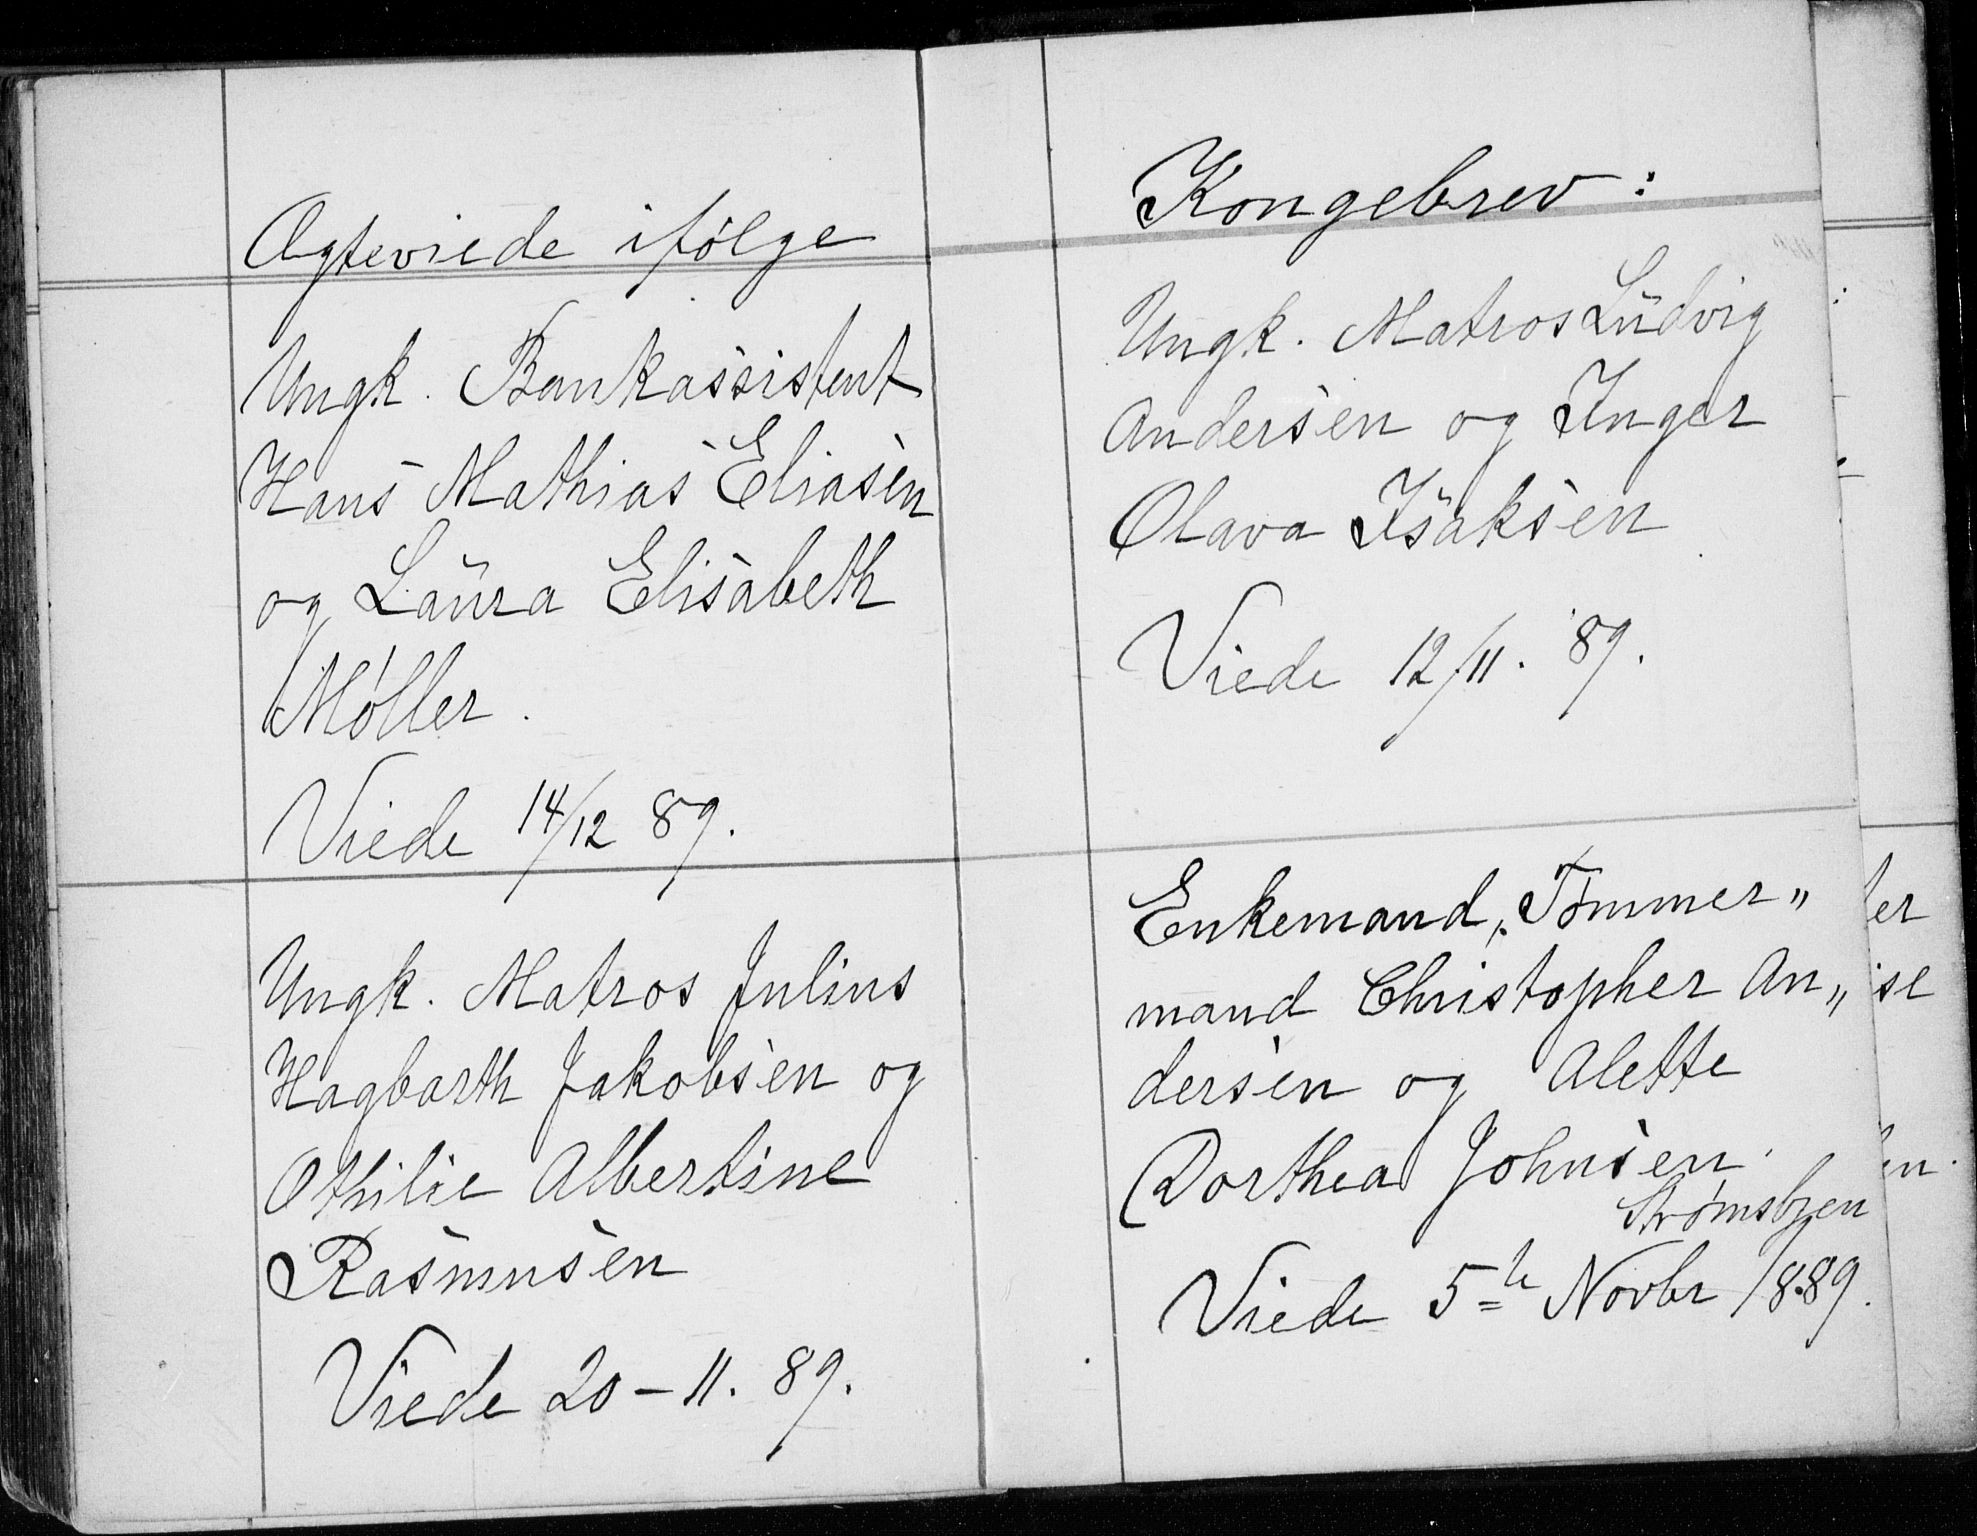 Ægteviede ifølge
Ungk. Bankassistent
Hans Mathias Eliasen
og Laura Elisabeth
Møller.
Viede 14/12 89.
Ungk. Matros Julius
Hagbarth Jakobsen og
Othilie Albertine
Rasmusen
Viede 20-11. 89.
Kongebrev:
Ungk. Matros Ludvig
Andersen og Inger
Olava Isaksen
Viede 12/11. 89.
Enkemand, Tømmer„
mand Christopher An„
dersen og Alette
Dorthea Johnsen.
Viede 5te Novbr 1889.